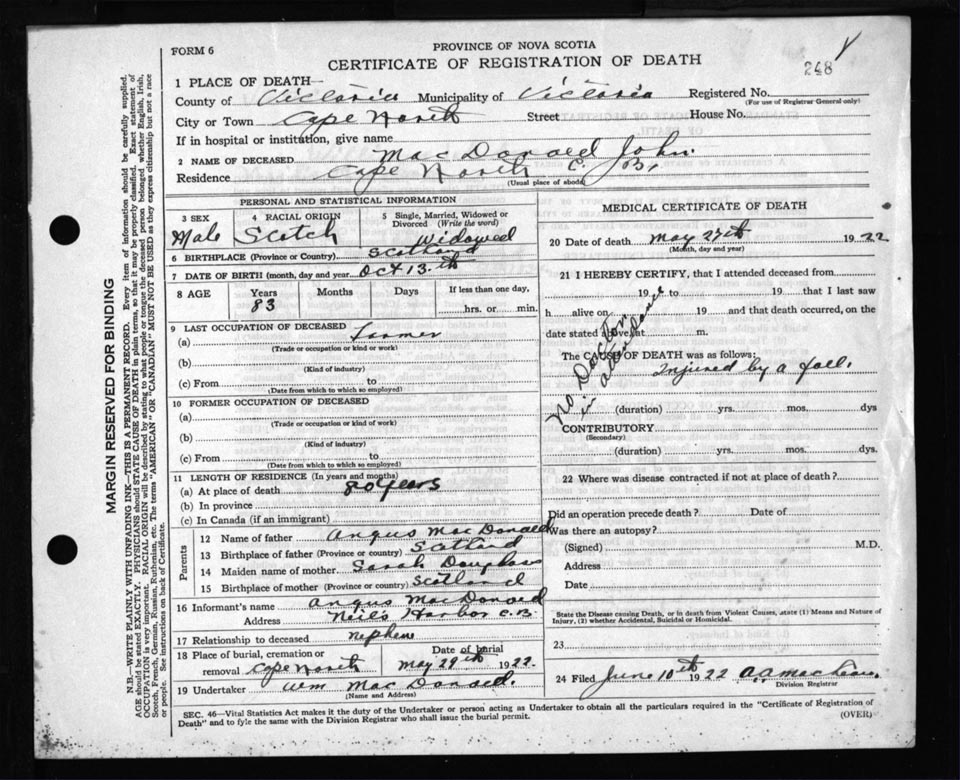 FORM 6
PROVINCE OF NOVA SCOTIA
CERTIFICATE OF REGISTRATION OF DEATH
248
1 PLACE OF DEATH—
County of Victoria Municipality of Victoria Registered No.
(For use of Registrar General only)
City or Town Cape North Street House No.
If in hospital or institution, give name
2 NAME OF DECEASED MacDonald John
Residence Cape North C. B.
(Usual place of abode)
PERSONAL AND STATISTICAL INFORMATION
3 SEX Male
4 RACIAL ORIGIN Scotch
5 Single, Married, Widowed or Divorced (Write the word) Widowed
6 BIRTHPLACE (Province or Country) Scotland
7 DATE OF BIRTH (month, day and year) Oct 13th
8 AGE Years 83 Months Days If less than one day, hrs. or min.
9 LAST OCCUPATION OF DECEASED
(a) Farmer
(Trade or occupation or kind or work)
(b)
(Kind of industry)
(c) From to
(Date from which to which so employed)
10 FORMER OCCUPATION OF DECEASED
(a)
(Trade or occupation or kind of work)
(b)
(Kind of industry)
(c) From to
(Date from which to which so employed)
11 LENGTH OF RESIDENCE (In years and months)
(a) At place of death 80 years
(b) In province
(c) In Canada (if an immigrant)
Parents
12 Name of father Angus MacDonald
13 Birthplace of father (Province or country) Scotland
14 Maiden name of mother Sarah Douglas
15 Birthplace of mother (Province or country) Scotland
16 Informant's name Angus MacDonald
Address Neil's Harbor C.B.
17 Relationship to deceased nephew
18 Place of burial, cremation or removal Cape North Date of burial May 29th 1922.
19 Undertaker Wm MacDonald.
(Name and Address)
MEDICAL CERTIFICATE OF DEATH
20 Date of death May 27th 1922
(Month, day and year)
21 I HEREBY CERTIFY, that I attended deceased from
19 to 19 that I last saw
h alive on 19 and that death occurred, on the
date stated above, at m.
The CAUSE OF DEATH was as follows:
Injured by a fall.
No Doctor in attendance
(duration) yrs. mos. dys
CONTRIBUTORY
(Secondary)
(duration) yrs. mos. dys.
22 Where was disease contracted if not at place of death?
Did an operation precede death? Date of
Was there an autopsy?
(Signed) M.D.
Address
Date
State the Disease causing Death, or in death from Violent Causes, state (1) Means and Nature of
Injury, (2) whether Accidental, Suicidal or Homicidal.
23
24 Filed June 10th 1922 A.A. MacLean.
Division Registrar
SEC. 46—Vital Statistics Act makes it the duty of the Undertaker or person acting as Undertaker to obtain all the particulars required in the "Certificate of Registration of
Death" and to fyle the same with the Division Registrar who shall issue the burial permit.
(OVER)
MARGIN RESERVED FOR BINDING
N.B.—WRITE PLAINLY WITH UNFADING INK—THIS IS A PERMANENT RECORD. Every item of information should be carefully supplied.
AGE should be stated EXACTLY. PHYSICIANS should STATE CAUSE OF DEATH in plain terms, so that it may be properly classified. Exact statement of
OCCUPATION is very important. RACIAL ORIGIN will be described by stating to what people or tongue the deceased person belonged whether English, Irish,
Scotch, French, German, Russian, Ruthenian, etc. The terms "AMERICAN" OR "CANADIAN" MUST NOT BE USED as they express citizenship but not a race
or people. See instructions on back of Certificate.